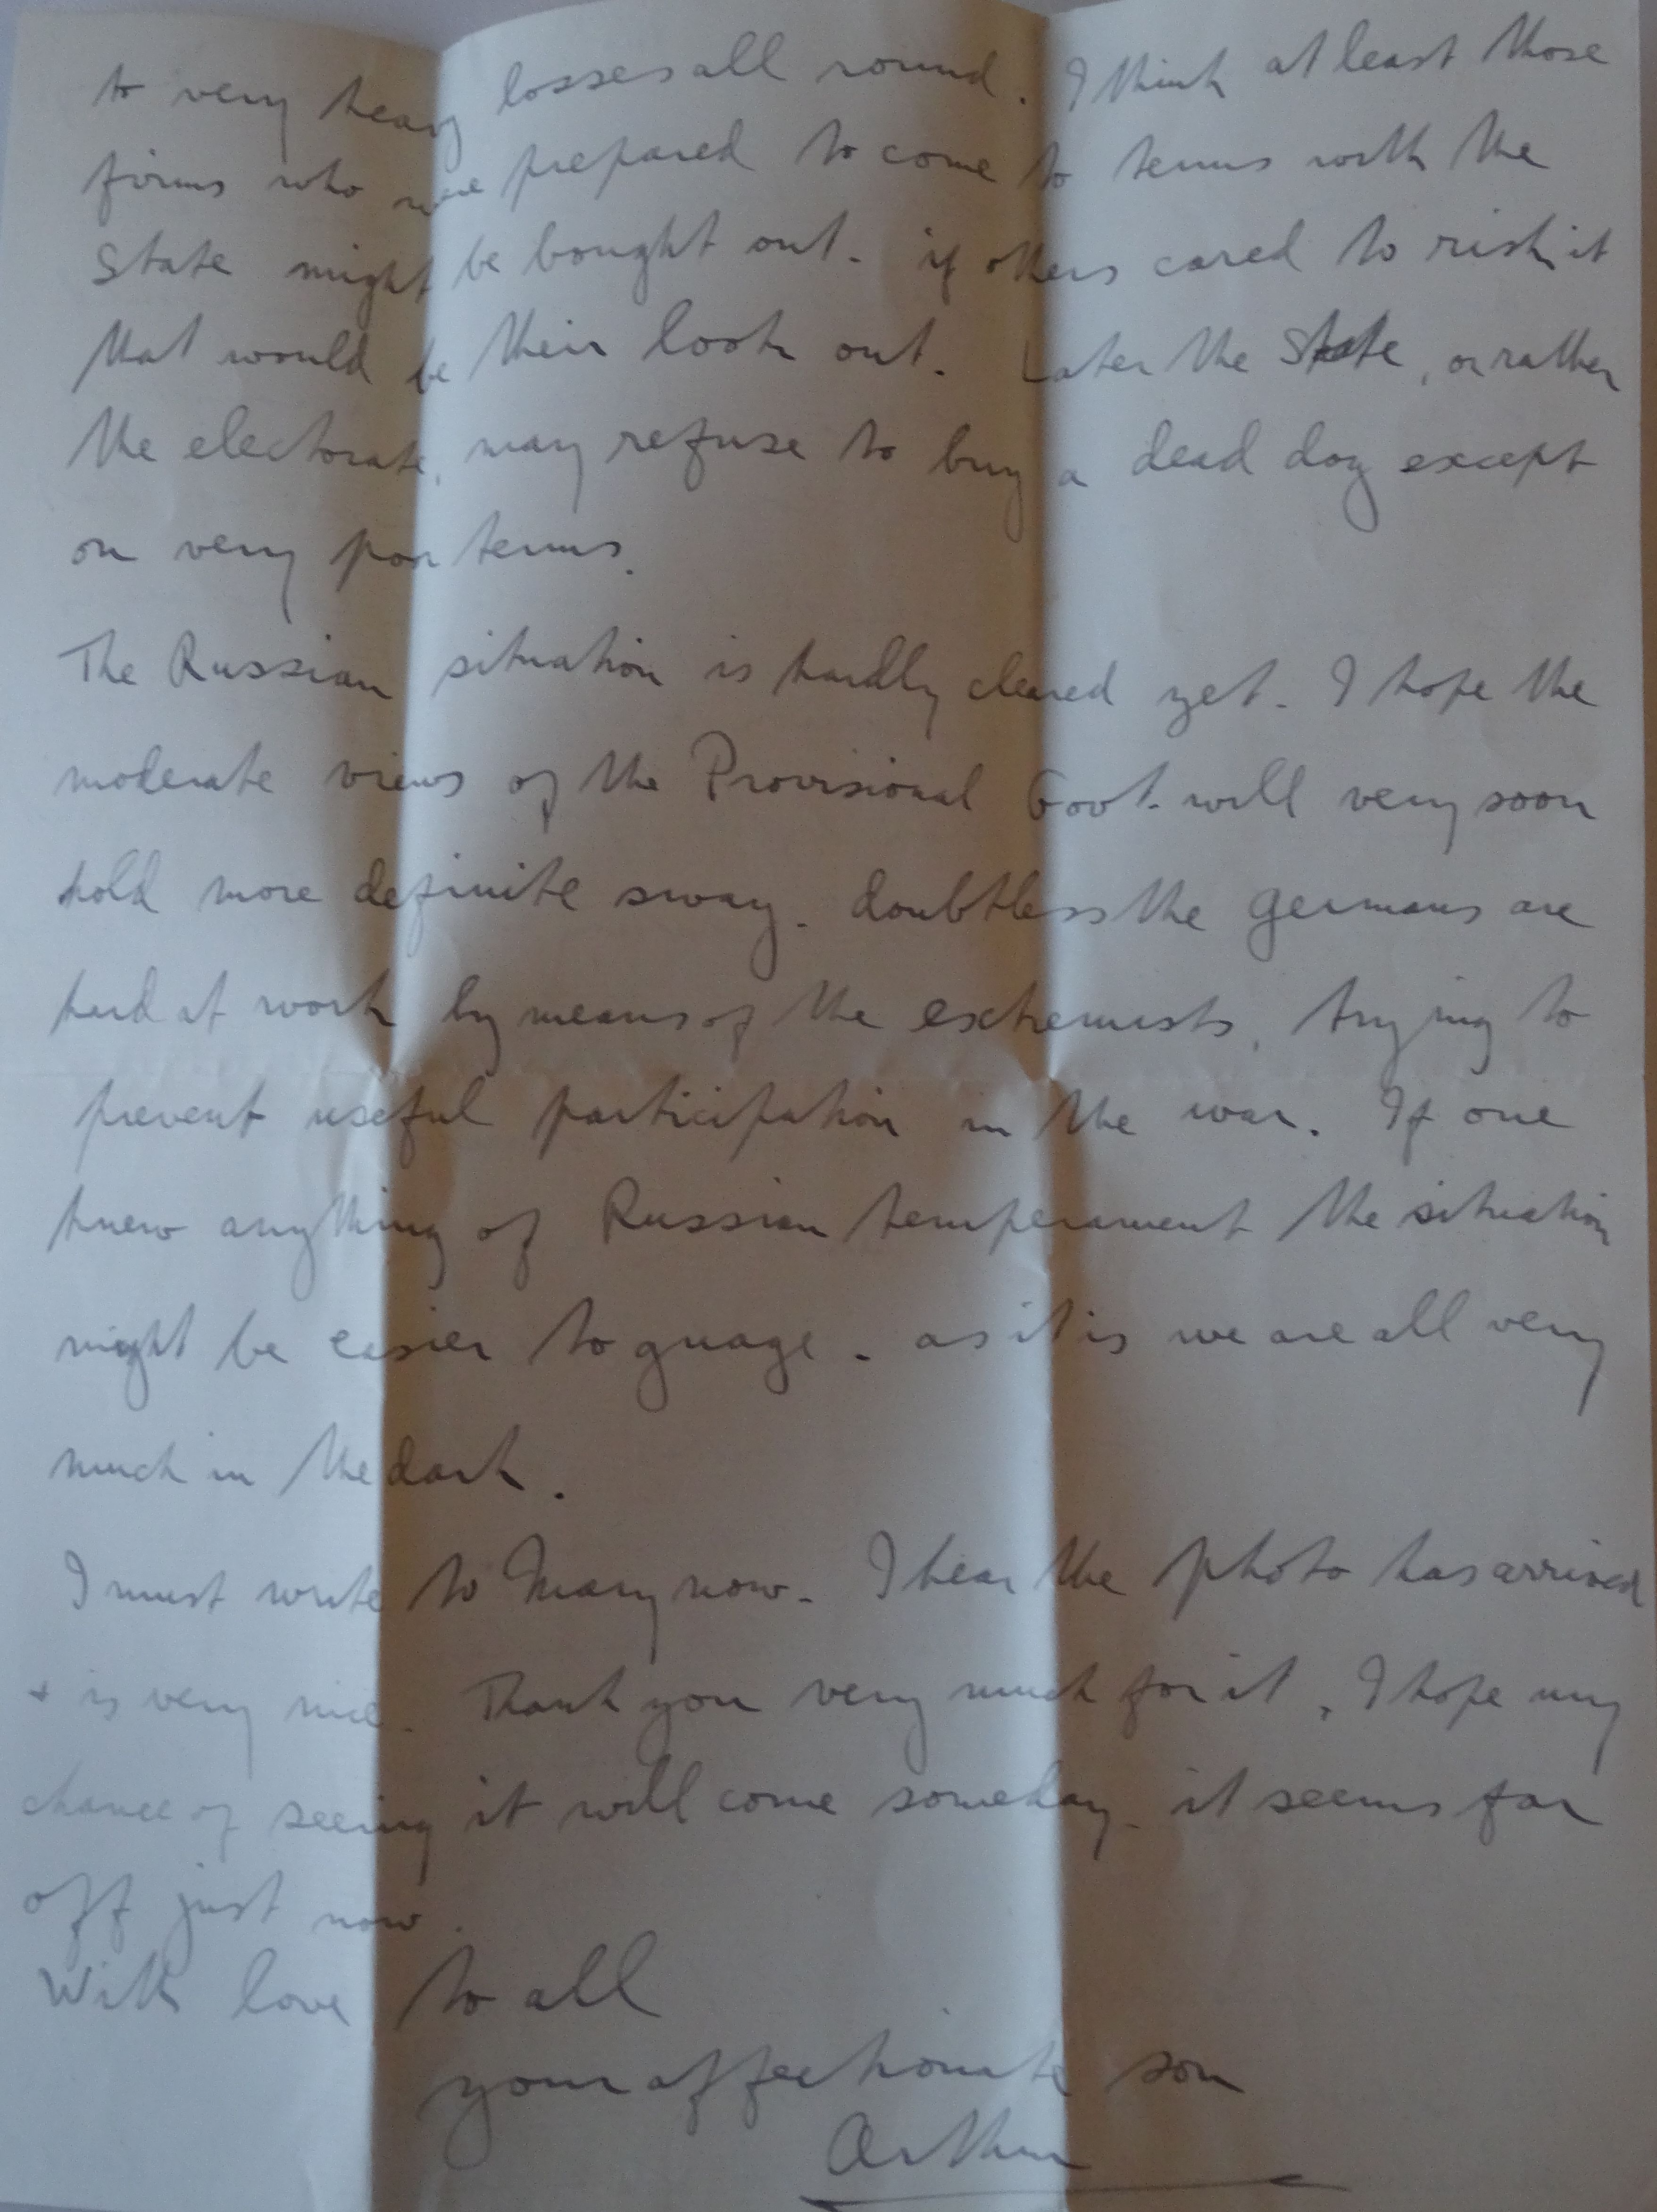 to very heavy losses all round. I think at least those
firms who were prepared to come to terms with the
State might be bought out. if others cared to risk it
that would be their look out. Later the State, or rather
the electorate, may refuse to buy a dead dog except
on very poor terms.
The Russian situation is hardly cleared yet. I hope the
moderate views of the Provisional Govt. will very soon
hold more definite sway. doubtless the Germans are
hard at work by means of the extremists, trying to
prevent useful participation in the war. If one
knew anything of Russian temperament the situation
might be easier to guage. as it is we are all very
much in the dark.
I must write to Mary now. I hear the photo has arrived
+ is very nice. Thank you very much for it, I hope my
chance of seeing it will come someday. it seems far
off just now.
With love to all
your affectionate son
Arthur